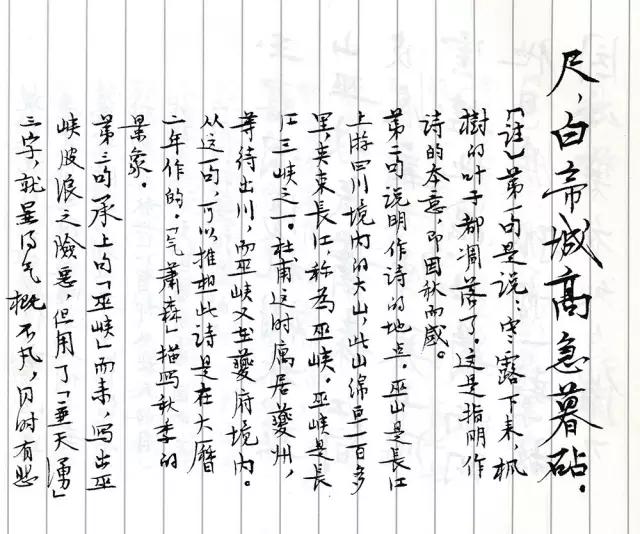 尺，白帝城高急暮砧．
「註」第一句是说：寒露下来，枫
樹的叶子都凋落了。这是指明作
诗的本意，即因秋而感。
第二句说明作诗的地点。巫山是長江
上游四川境内的大山，此山绵亘一百多
里，夹束長江，称為巫峡。巫峡是長
江三峡之一。杜甫这时寓居夔州，
等待出川，而巫峡又在夔府境内。
从这一句，可以推想此诗是在大曆
二年作的。「气萧森」描写秋季的
景象。
第三句承上句「巫峡」而来，写出巫
峡波浪之險惡，但用了「兼天湧」
三字，就显得气概不凡，同时有悲